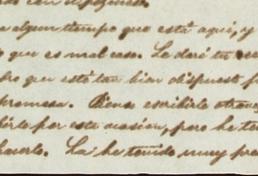 con
algun tiempo que está aquí, y
que es mal caso. Le daré tu
que está tan bien dispuesto
promesa. Pienso escribirle otra
por esta ocasion, pero he te
hacerlo. La he tenido muy pre